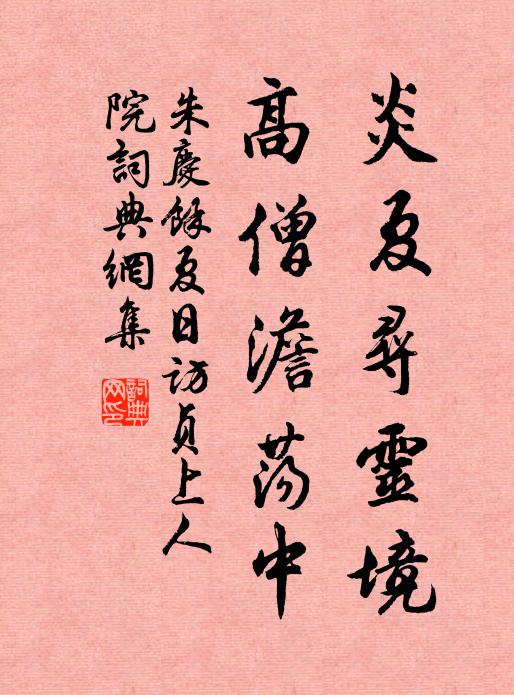 炎夏尋靈境
高僧澹蕩中
朱慶餘夏日訪貞上人
院詞典網集
詞典
网印